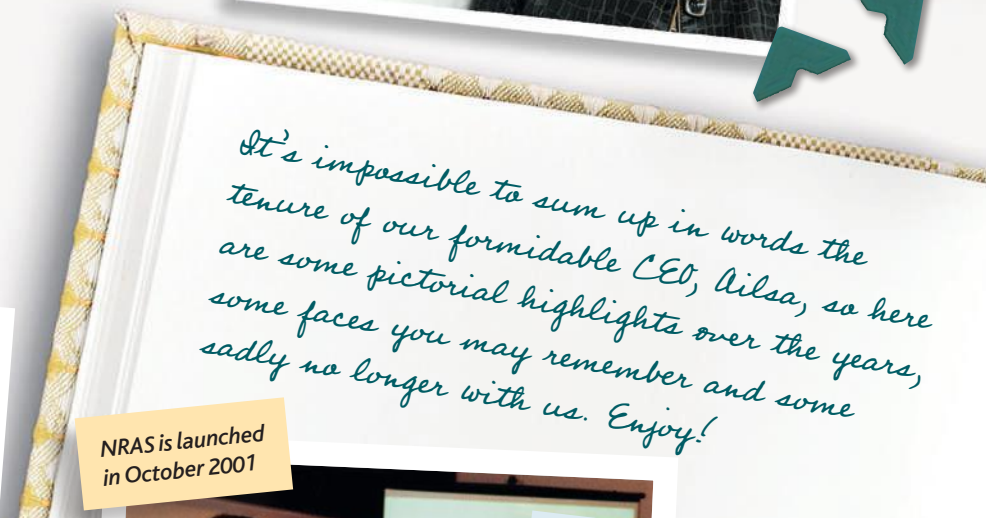 It's impossible to sum up in words the
tenure of our formidable CEO, Ailsa, so here
are some pictorial highlights over the years,
some faces you may remember and some
sadly no longer with us. Enjoy!
NRAS is launched
in October 2001